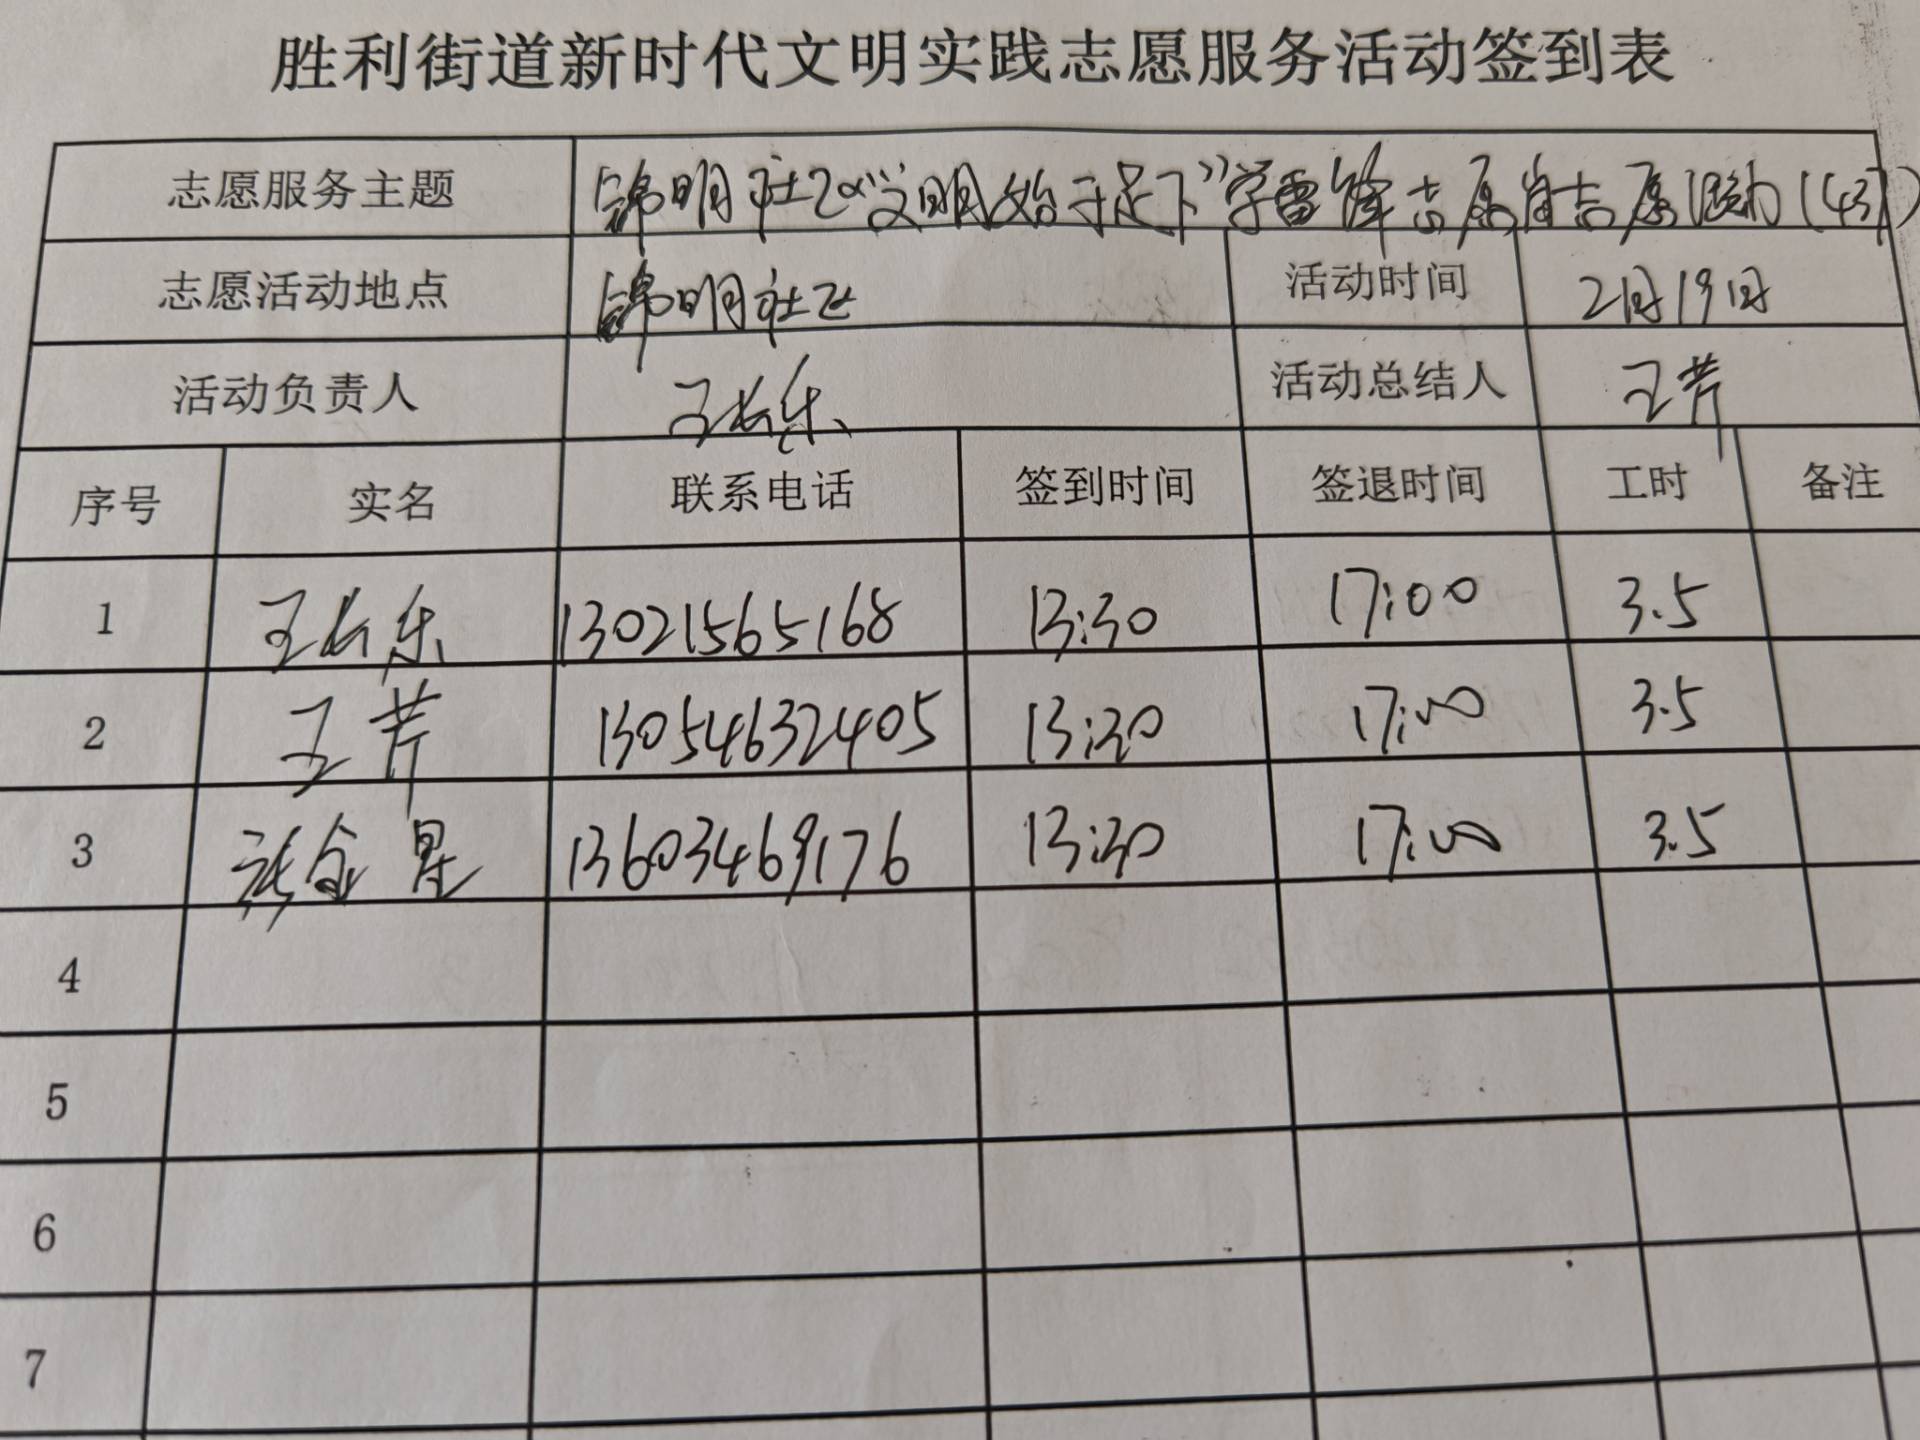 胜利街道新时代文明实践志愿服务活动签到表
志愿服务主题 锦明社区“文明始于足下”学雷锋志愿者志愿活动(43)
志愿活动地点 锦明社区 活动时间 2月19日
活动负责人 王长乐 活动总结人 王芹
序号 实名 联系电话 签到时间 签退时间 工时 备注
1 王长乐 13021565168 13:30 17:00 3.5
2 王芹 13054632405 13:30 17:00 3.5
3 张金星 13603469176 13:30 17:00 3.5
4
5
6
7